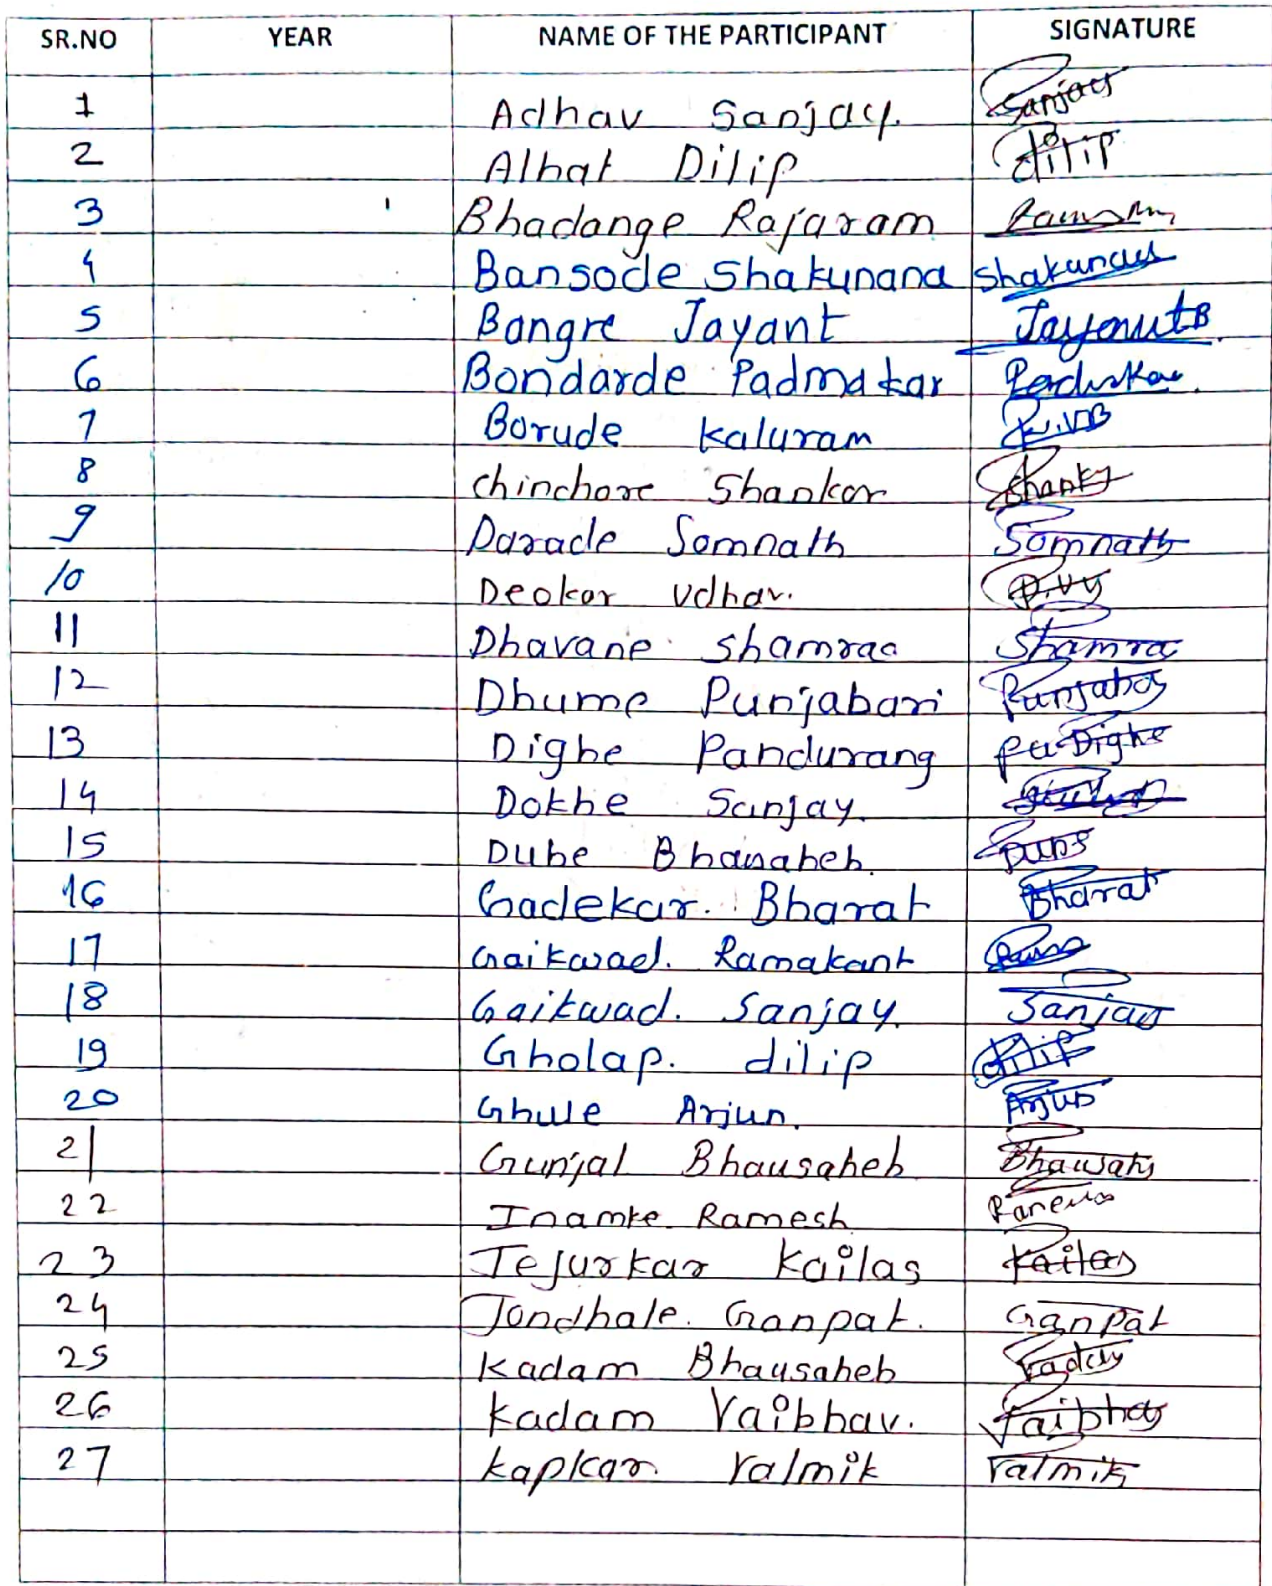 SR.NO YEAR NAME OF THE PARTICIPANT SIGNATURE
1 Adhav Sanjay. Sanjay
2 Alhat Dilip dilip
3 Bhadange Rajaram
4 Bansode Shakunana
5 Bangre Jayant
6 Bondarde Padmakar
7 Borude Kaluram
8 chinchore Shankar
9 Darade Somnath Somnath
10 Deokar Udhav.
11 Dhavane Shamrao
12 Dhume Punjabari
13 Dighe Pandurang Dighe
14 Dokhe Sanjay.
15 Dube Bhausaheb.
16 Gadekar. Bharat Bharat
17 Gaikwad. Ramakant
18 Gaikwad. Sanjay. Sanjay
19 Gholap. dilip dilip
20 Ghule Arjun. Arjun
21 Gunjal Bhausaheb
22 Inamke Ramesh
23 Jejurkar Kailas Kailas
24 Jondhale. Ganpat. Ganpat
25 Kadam Bhausaheb
26 Kadam Vaibhav.
27 Kapkar Valmik Valmik